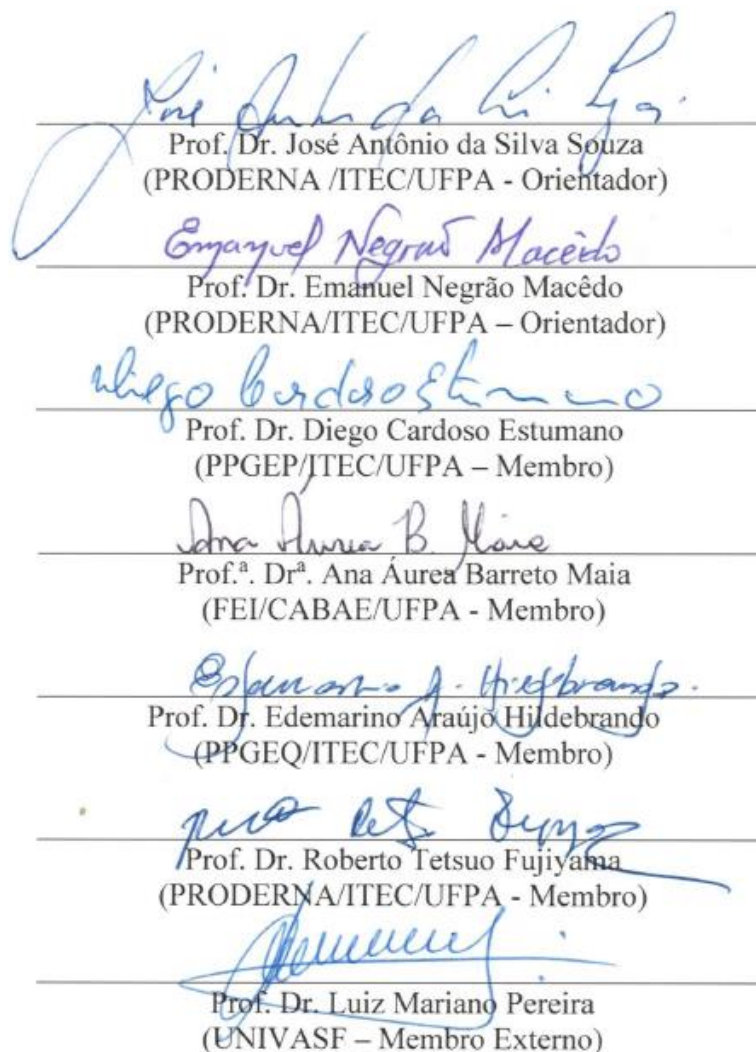 José Antônio da Silva Souza
Prof. Dr. José Antônio da Silva Souza
(PRODERNA /ITEC/UFPA - Orientador)
Emanuel Negrão Macêdo
Prof. Dr. Emanuel Negrão Macêdo
(PRODERNA/ITEC/UFPA – Orientador)
Diego Cardoso Estumano
Prof. Dr. Diego Cardoso Estumano
(PPGEP/ITEC/UFPA – Membro)
Ana Áurea B. Maia
Prof.ª. Drª. Ana Áurea Barreto Maia
(FEI/CABAE/UFPA - Membro)
Edemarino A. Hildebrando.
Prof. Dr. Edemarino Araújo Hildebrando
(PPGEQ/ITEC/UFPA - Membro)
Prof. Dr. Roberto Tetsuo Fujiyama
(PRODERNA/ITEC/UFPA - Membro)
Prof. Dr. Luiz Mariano Pereira
(UNIVASF – Membro Externo)